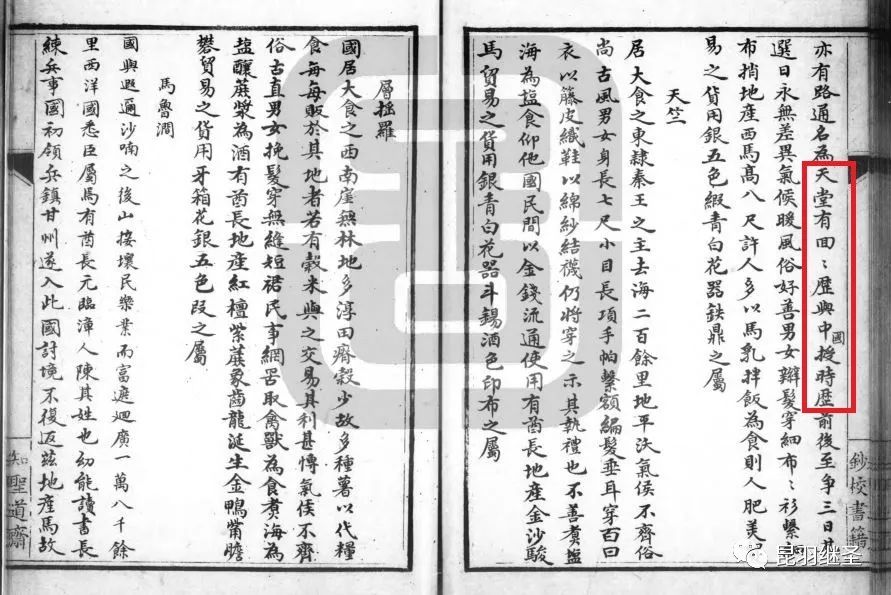 亦有路通名為天堂有回〻歷與中國授時歷前後至爭三日其
選日永無差異氣候暖風俗好善男女辮髮穿細布〻衫繫細
布捎地產西馬高八尺許人多以馬乳拌飯為食則人肥美
易之貨用銀五色緞青白花器鉄鼎之屬
天竺
居大食之東隷秦王之主去海二百餘里地平沃氣侯不齊俗
尚古風男女身長七尺小目長項手帕繫額編髮垂耳穿百回
衣以籐皮織鞋以綿紗結襪仍將穿之示其執禮也不善煑塩
海為塩食仰他國民間以金錢流通使用有酋長地產金沙駿
馬貿易之貨用銀青白花器斗錫酒色印布之屬
層揺羅
國居大食之西南崖無林地多淳田瘠穀少故多種薯以代糧
食每每販於其地者若有穀米與之交易其利甚慱氣侯不齊
俗古直男女挽髮穿無縫短裙民事網罟取禽獸為食煑海為
塩釀蔗漿為酒有酋長地產紅檀紫蔗象齒龍涎生金鴨觜膽
礬貿易之貨用牙箱花銀五色段之屬
馬魯澗
國與遐邇沙喃之後山接壤民樂業而富庭迴廣一萬八千餘
里西洋國悉臣屬馬有酋長元臨漳人陳其姓也幼能讀書長
練兵事國初領兵鎮甘州遂入此國討境不復返茲地產馬故
鈔校書籍
知聖道齋
昆羽继圣